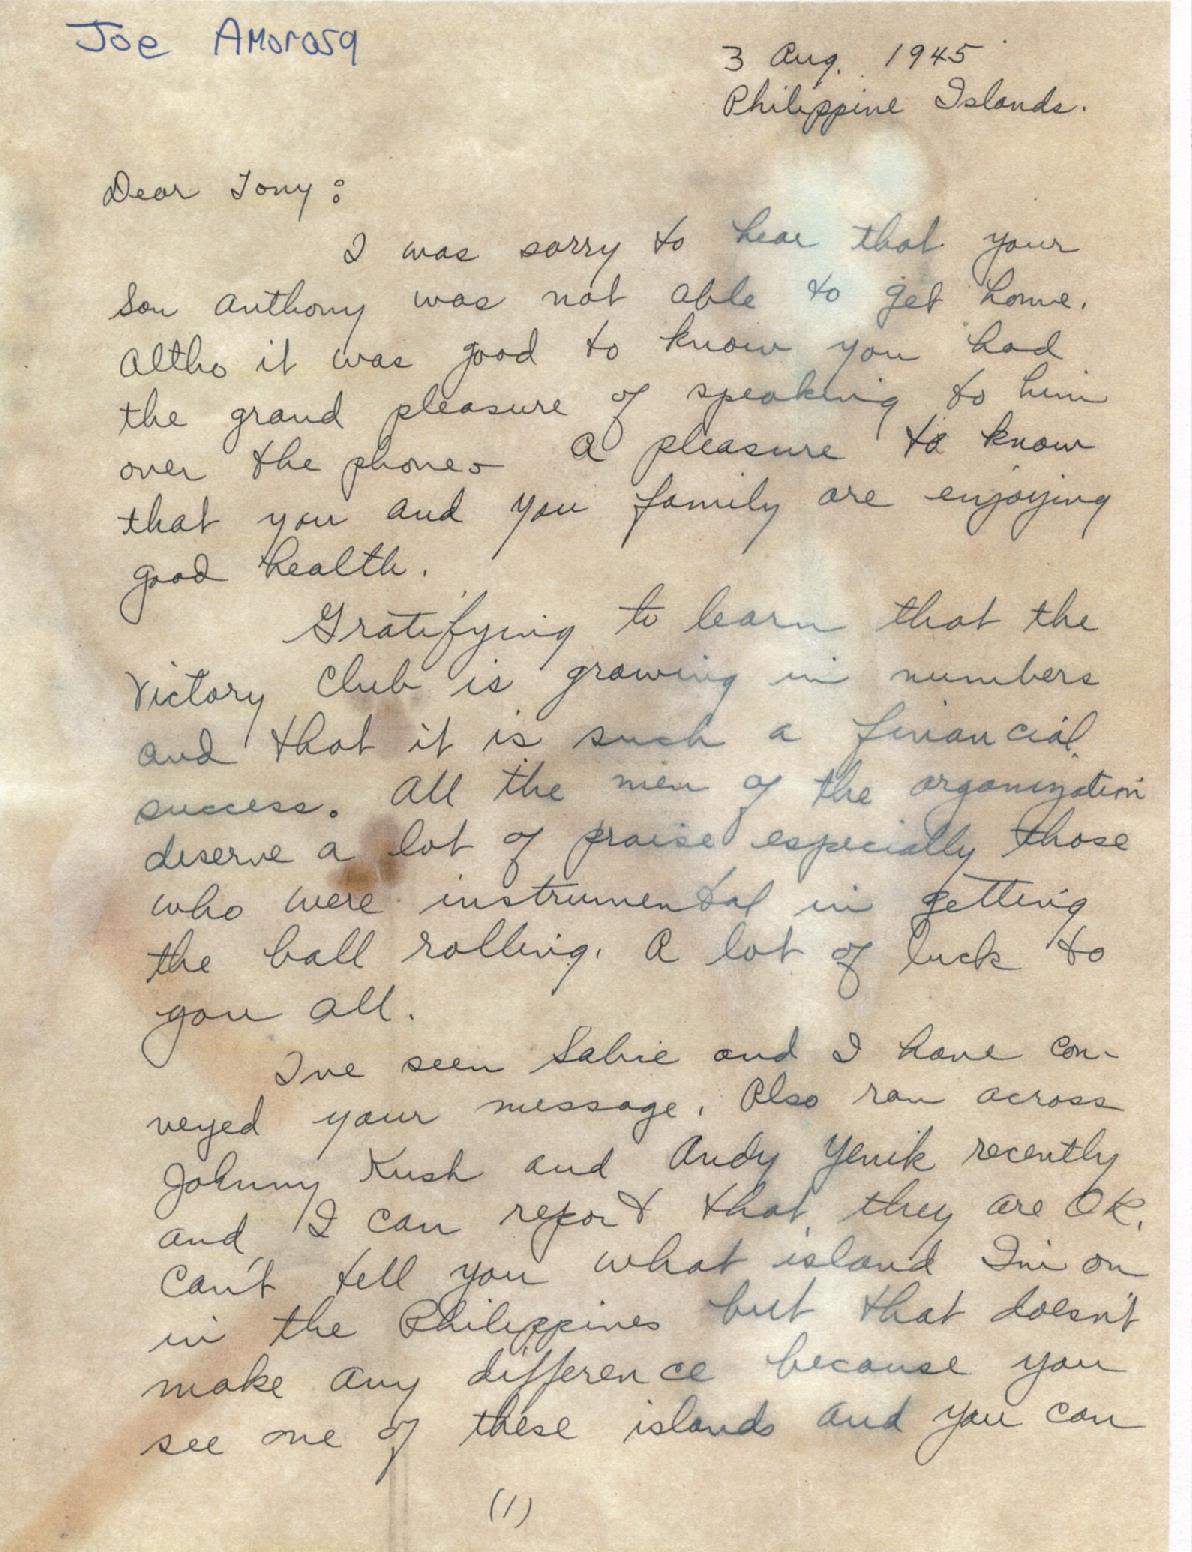 Joe Amorosa
3 Aug. 1945
Philippine Islands.
Dear Tony:
I was sorry to hear that your
Son Anthony was not able to get home.
Altho it was good to know you had
the grand pleasure of speaking to him
over the phone - A pleasure to know
that you and you family are enjoying
good health.
Gratifying to learn that the
Victory Club is growing in numbers
and that it is such a financial
success. All the men of the organization
deserve a lot of praise especially those
who were instrumental in getting
the ball rolling. A lot of luck to
you all.
I've seen Sabie and I have con-
veyed your message. Also ran across
Johnny Kush and Andy Yenik recently
and I can report that they are OK.
Can't tell you what island I'm on
in the Philippines but that doesn't
make any difference because you
see one of these islands and you can
(1)